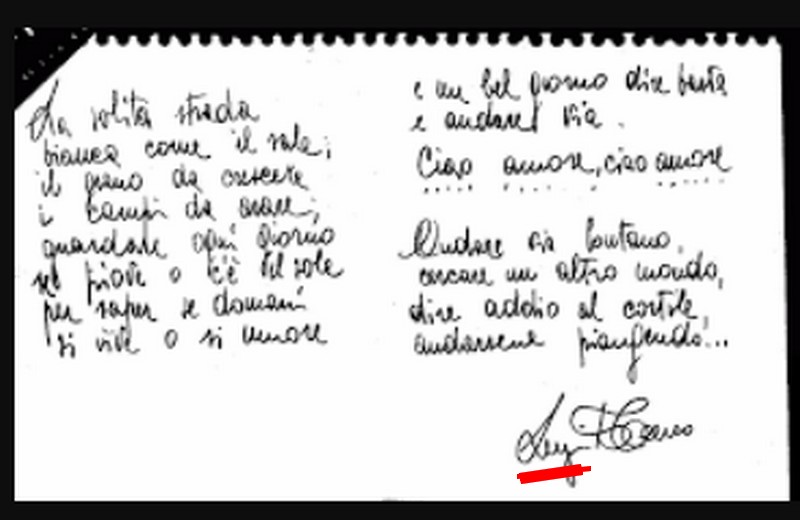 La solita strada
bianca come il sale;
il grano da crescere
i campi da arare;
guardare ogni giorno
se piove o c'è il sole
per saper se domani
si vive o si muore
e un bel giorno dire basta
e andare via.
Ciao amore, ciao amore
Andare via lontano,
cercare un altro mondo,
dire addio al cortile,
andarsene piangendo...
Luigi Tenco